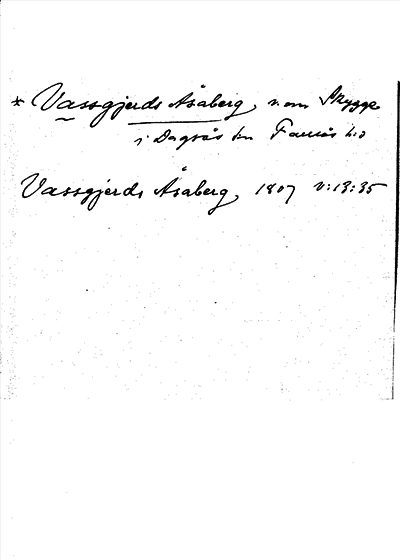 * Vassgjerds Åsaberg, v. om Skygge
i Dagsås sn Faurås hd
Vassgjerds Åsaberg, 1807 V:13:35